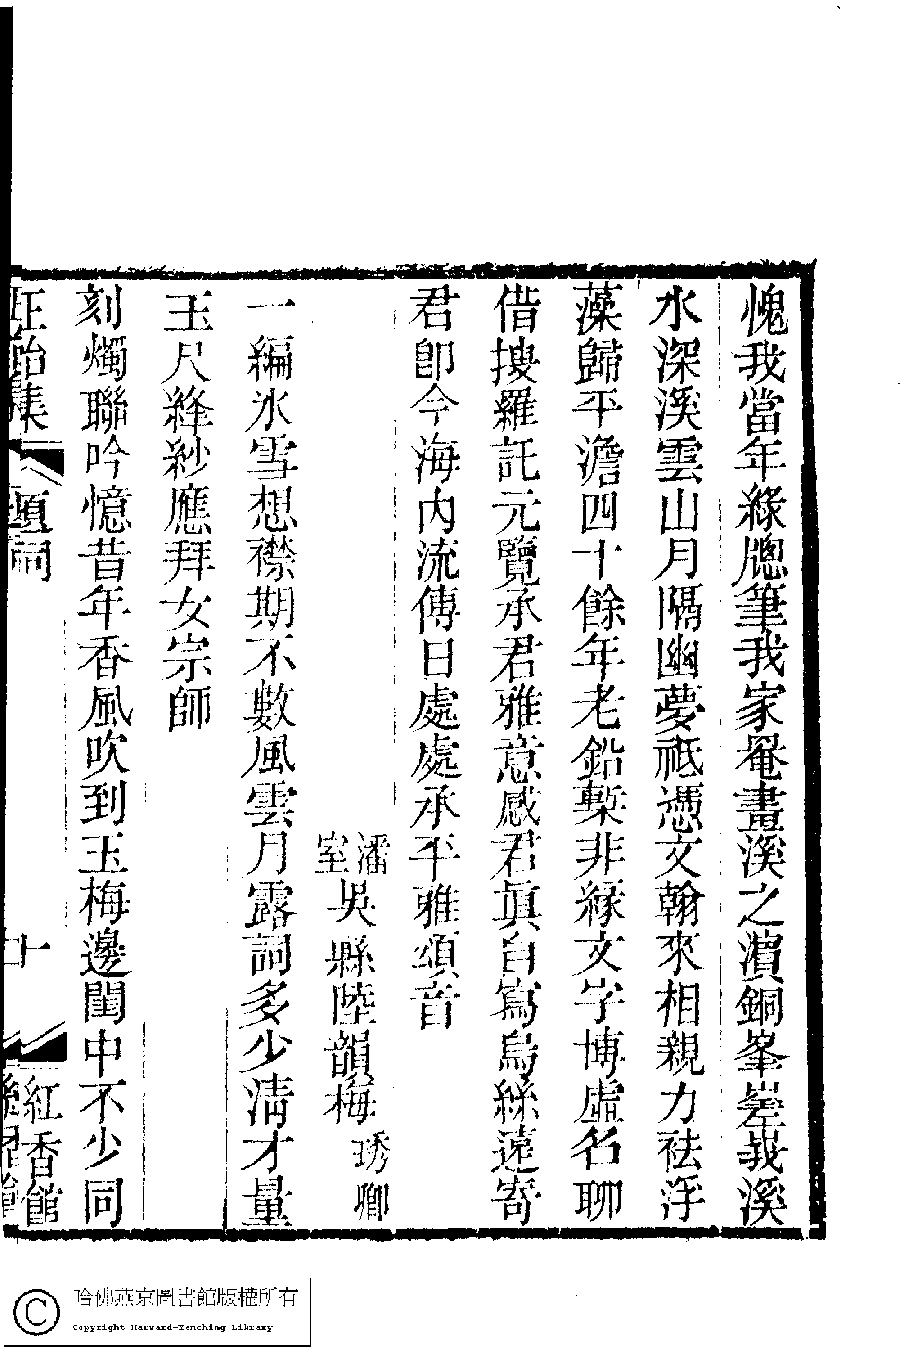 愧我當年綠牕筆我家罨畫溪之濵銅峯𡺸峩溪
水深溪雲山月隔幽夢祗憑文翰來相親力袪浮
藻歸平澹四十餘年老鉛槧非緣文字博虛名聊
借搜羅託元覽承君雅意感君眞自寫烏絲遠寄
君卽今海内流傳日處處承平雅頌音
潘室吳縣陸韻梅琇卿
一編氷雪想襟期不數風雲月露詞多少淸才量
玉尺絳紗應拜女宗師
刻燭聯吟憶昔年香風吹到玉梅邊閨中不少同
正始集 題詞 十 紅香館
哈佛燕京圖書館版權所有
Copyright Harvard-Yenching Library